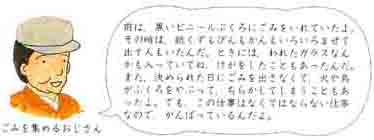 前は、黒いビニールぶくろにごみをいれていたよ。
その時は、紙くずもびんもかんもいろいろまぜて
出す人もいたんだ。ときには、われたガラスなん
かも入っていてね、けがをしたこともあったんだ。
また、決められた日にごみを出さなくて、犬や鳥
がふくろをやぶって、ちらかしてしまうこともあ
ったよ。でも、この仕事はなくてはならない仕事
なので、がんばっているんだよ。
ごみを集めるおじさん